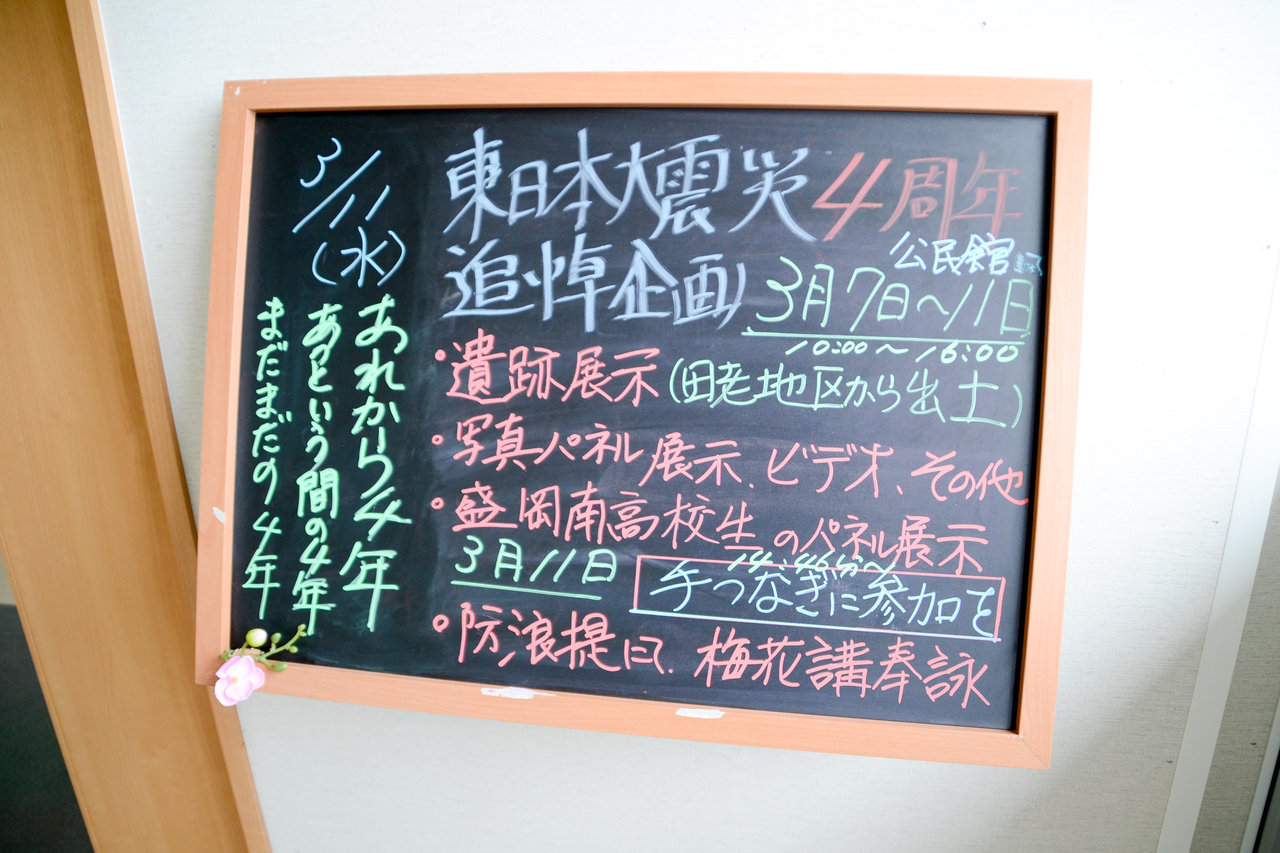 3/11
(水)
あれから4年
あっという間の4年
まだまだの4年
東日本大震災4周年
追悼企画
公民館
3月7日〜11日
10:00〜16:00
・遺跡展示(田老地区から出土)
・写真パネル展示、ビデオ、その他
・盛岡南高校生のパネル展示
3月11日
14:46分〜
手つなぎに参加を
・防浪堤にて、梅花講奉詠